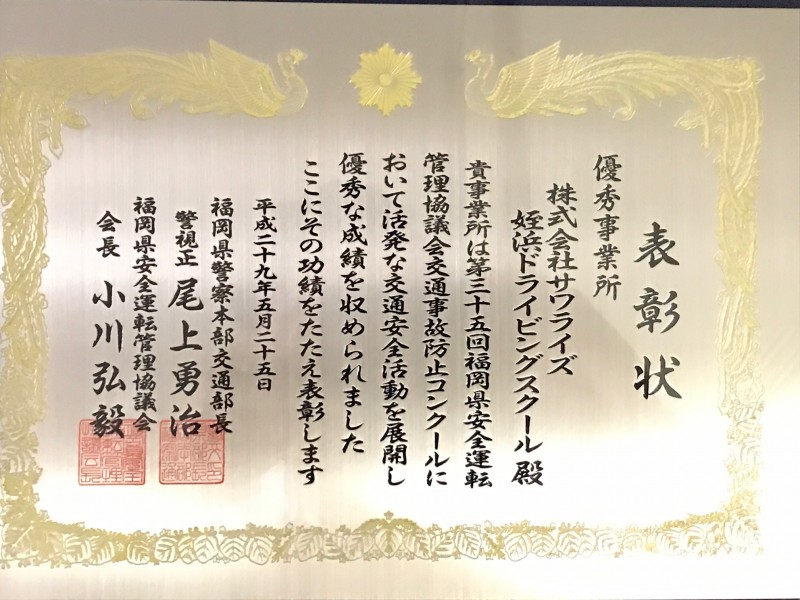 表彰状
優秀事業所
株式会社サワライズ
姪浜ドライビングスクール殿
貴事業所は第三十五回福岡県安全運転
管理協議会交通事故防止コンクールに
おいて活発な交通安全活動を展開し
優秀な成績を収められました
ここにその功績をたたえ表彰します
平成二十九年五月二十五日
福岡県警察本部交通部長
警視正 尾上勇治
福岡県安全運転管理協議会
会長 小川弘毅